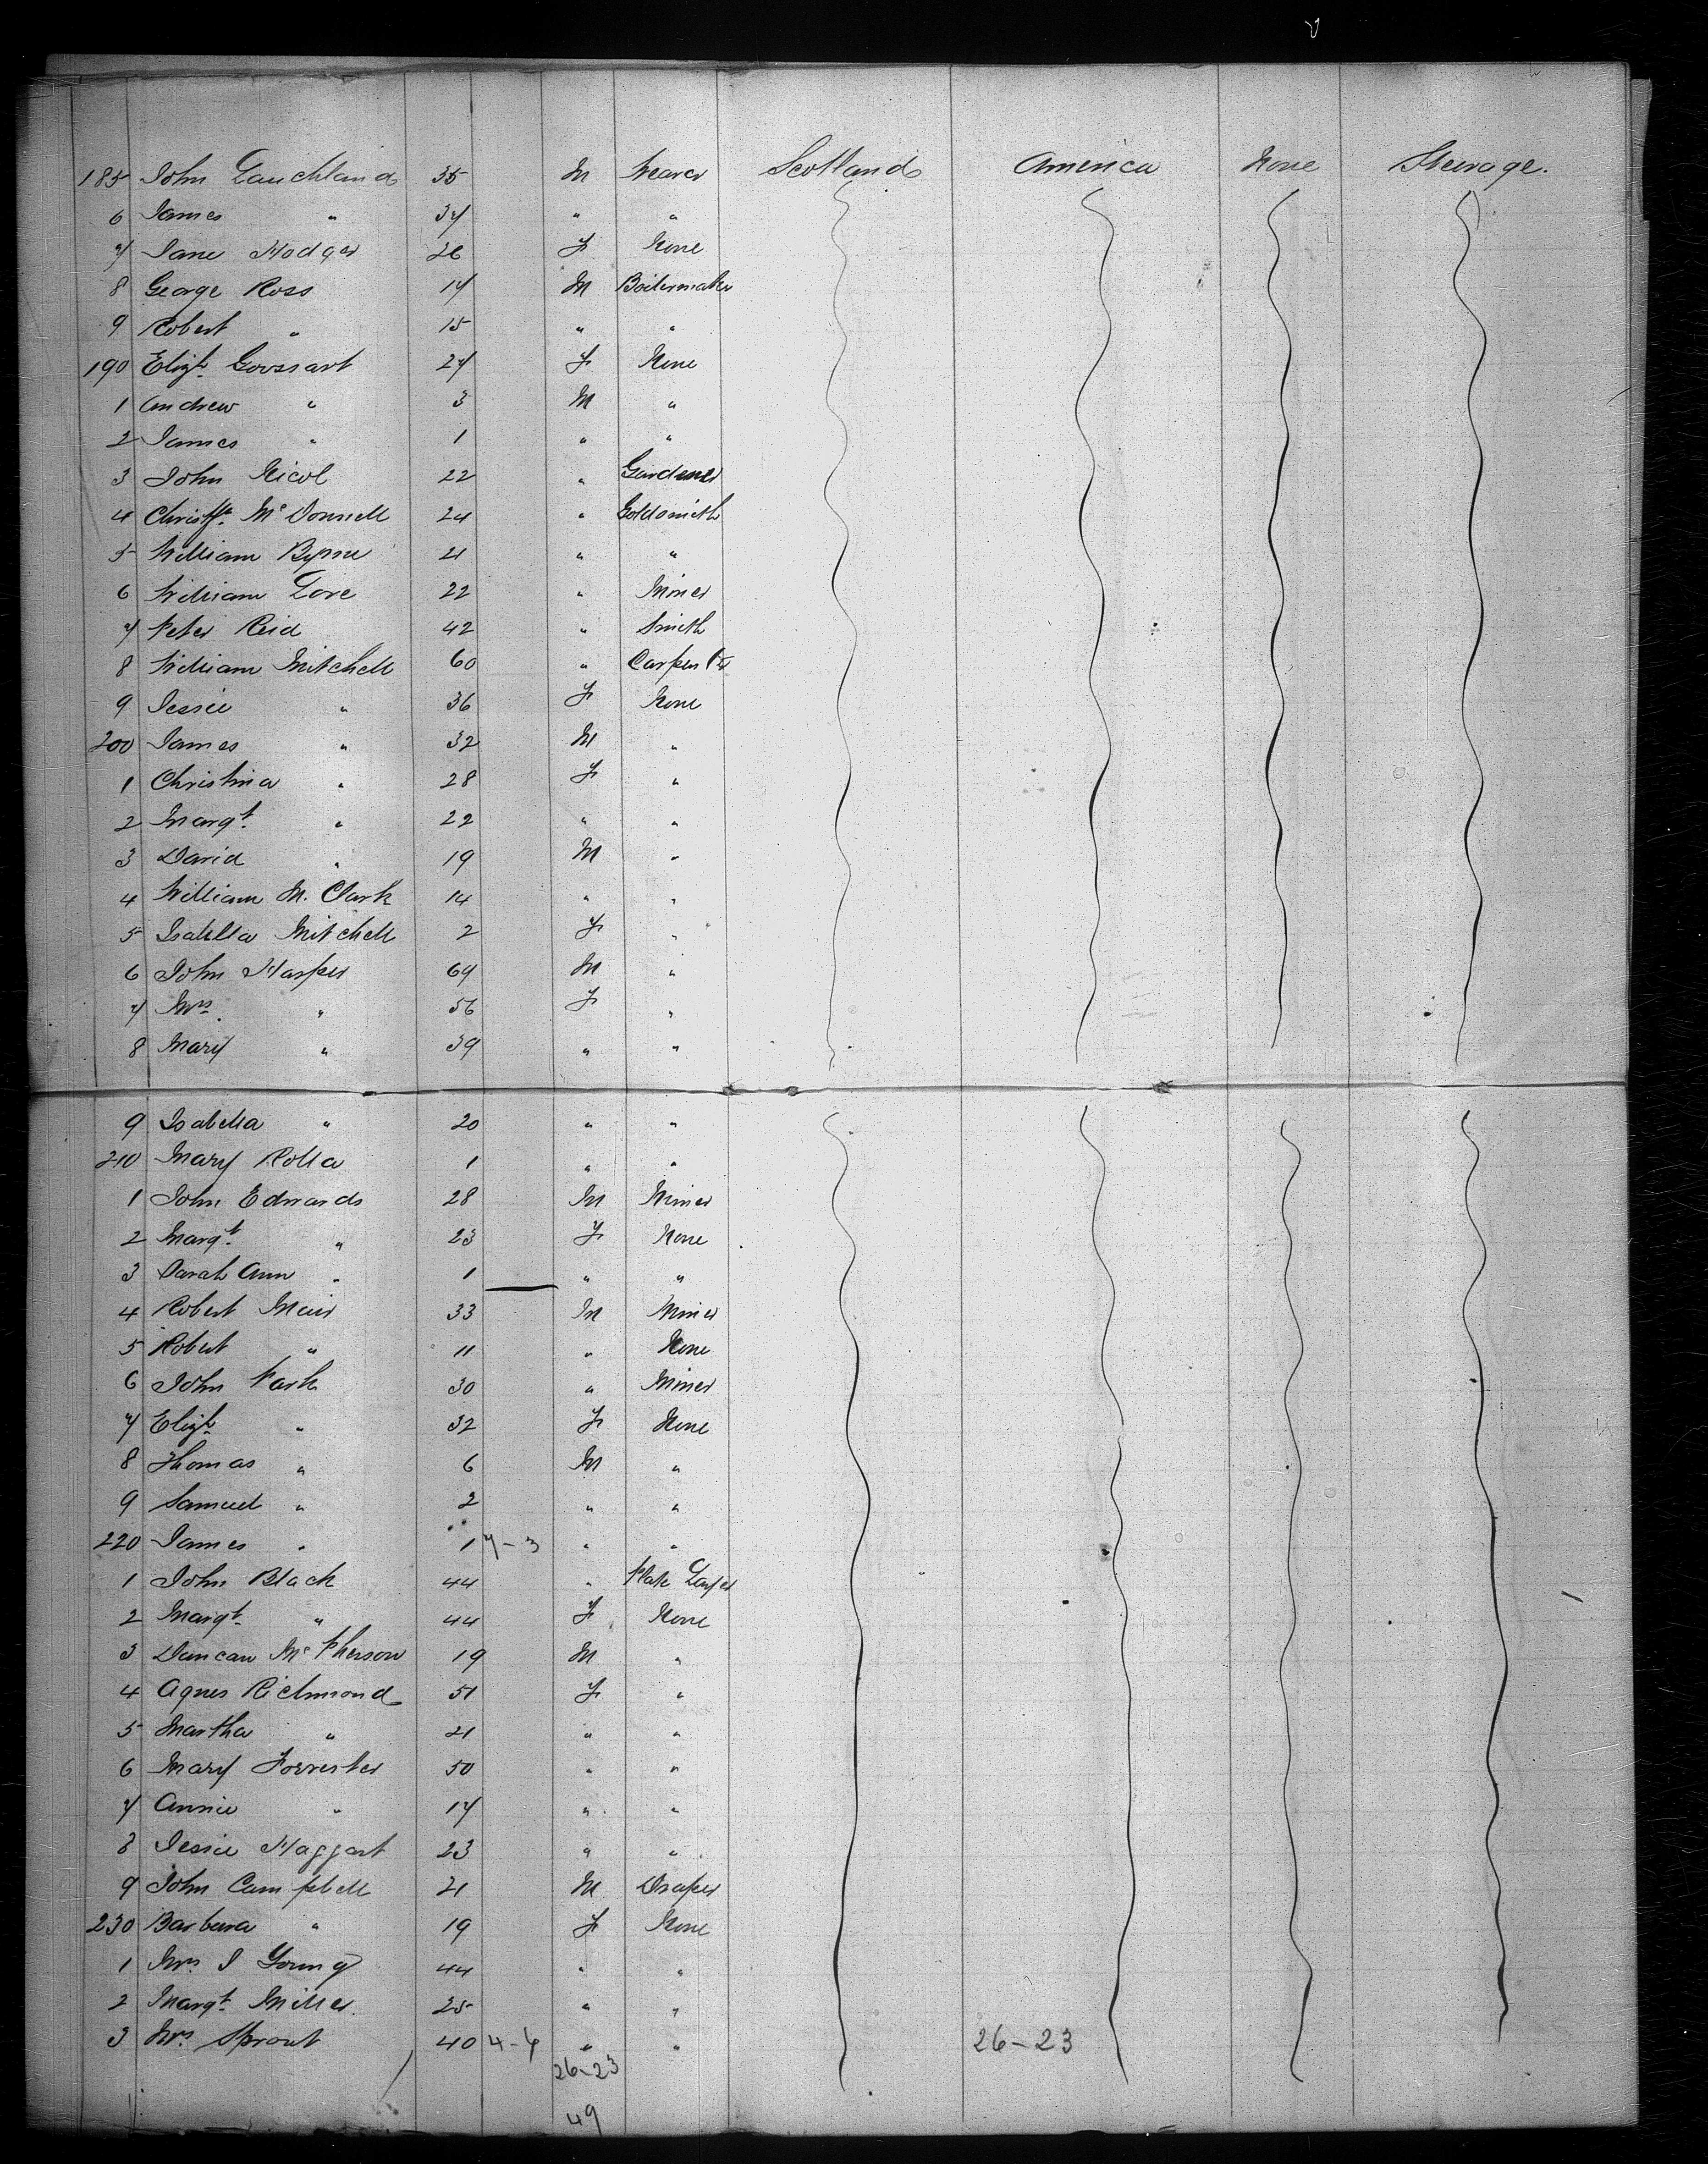 185 John Lauchland 35 M Weaver Scotland America None Steerage.
6 James " 37 " "
7 Jane Hodger 26 F None
8 George Ross 17 M Boilermaker
9 Robert " 15 " "
190 Elizh. Govssart 27 F None
1 Andrew " 3 M "
2 James " 1 " "
3 John Nicol 22 " Gardener
4 Christr. McDonnell 24 " Goldsmith
5 William Byrne 21 " "
6 William Love 22 " Miner
7 Peter Reid 42 " Smith
8 William Mitchell 60 " Carpenter
9 Jessie " 36 F None
200 James " 32 M "
1 Christina " 28 F "
2 Margt. " 22 " "
3 David " 19 M "
4 William M. Clark 14 " "
5 Isabella Mitchell 2 F "
6 John Harper 69 M "
7 Mrs. " 56 F "
8 Mary " 39 " "
9 Isabella " 20 " "
210 Mary Rolla 1 " "
1 John Edwards 28 M Miner
2 Margt. " 23 F None
3 Sarah Ann " 1 " "
4 Robert Muir 33 M Miner
5 Robert " 11 " None
6 John Park 30 " Miner
7 Elizh. " 32 F None
8 Thomas " 6 M "
9 Samuel " 2 " "
220 James " 1 7-3 " "
1 John Black 44 " Plate Layer
2 Margt. " 44 F None
3 Duncan McPherson 19 M "
4 Agnes Richmond 51 F "
5 Martha " 21 " "
6 Mary Forrester 50 " "
7 Annie " 17 " "
8 Jessie Haggart 23 " "
9 John Campbell 21 M Draper
230 Barbara " 19 F None
1 Mrs. J Young 44 " "
2 Margt. Miller 25 " "
3 Mrs. Sprout 40 4-6 " " 26-23
26-23
49